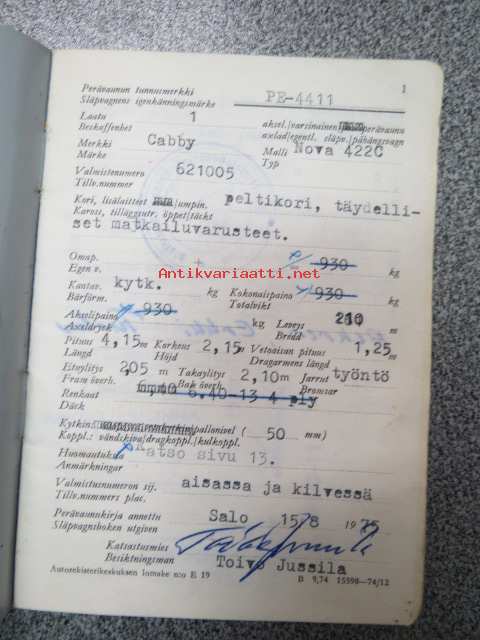 1
Perävaunun tunnusmerkki
Släpvagnens igenkänningsmärke PE-4411
Laatu 1 aksel./varsinainen perävaunu
Beskaffenhet axlad/egentl. släpv./påhängsvagn
Merkki Cabby Malli Nova 422C
Märke Typ
Valmistenumero 621005
Tillv.nummer
Kori, lisälaitteet /umpin. peltikori, täydelli-
Kaross, tilläggsutr. öppet/täckt
set matkailuvarusteet.
Omap. 930 kg
Egen v.
Antikvariaatti.net
Kantav. kytk. kg Kokonaispaino 930 kg
Bärförm. Totalvikt
Akselipaino 930 kg Leveys 210 m
Axeldryck Bredd
Pituus 4,15m Korkeus 2,15m Vetoaisan pituus 1,25m
Längd Höjd Dragarmens längd
Etuylitys 205 m Takaylitys 2,10m Jarrut työntö
Fram överh. Bak överh. Bromsar
Renkaat 6.40-13 4 ply
Däck
Kytkin: /pallonivel ( 50 mm)
Koppl.: vändskiva/dragkoppl./kulkoppl.
Huomautuksia Katso sivu 13.
Anmärkningar
Valmistusnumeron sij. aisassa ja kilvessä
Tillv.nummers plac.
Perävaunukirja annettu Salo 15/8 1975
Släpvagnsboken utgiven
Katsastusmies
Besiktningsman Toivo Jussila
Autorekisterikeskuksen lomake n:o E 19 B 9,74 15598-74/12